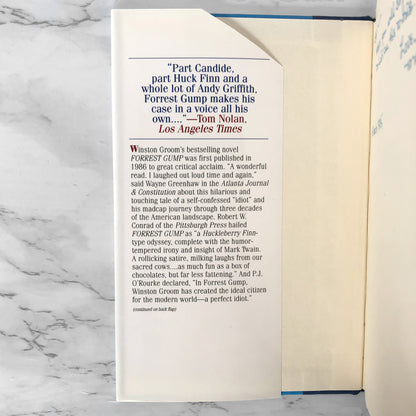 "Part Candide,
part Huck Finn and a
whole lot of Andy Griffith,
Forrest Gump makes his
case in a voice all his
own...."—Tom Nolan,
Los Angeles Times
Winston Groom's bestselling novel
FORREST GUMP was first published in
1986 to great critical acclaim. "A wonderful
read. I laughed out loud time and again,"
said Wayne Greenhaw in the Atlanta Journal
& Constitution about this hilarious and
touching tale of a self-confessed "idiot" and
his madcap journey through three decades
of the American landscape. Robert W.
Conrad of the Pittsburgh Press hailed
FORREST GUMP as "a Huckleberry Finn-
type odyssey, complete with the humor-
tempered irony and insight of Mark Twain.
A rollicking satire, milking laughs from our
sacred cows....as much fun as a box of
chocolates, but far less fattening." And P.J.
O'Rourke declared, "In Forrest Gump,
Winston Groom has created the ideal citizen
for the modern world—a perfect idiot."
(continued on back flap)